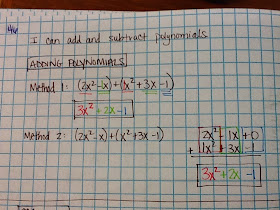 4a
I can add and subtract polynomials
ADDING POLYNOMIALS
Method 1: (2x²-x)+(x²+3x-1)
3x²+2x-1
Method 2: (2x²-x)+(x²+3x-1)
2x²-1x+0
+ 1x²+3x-1
3x²+2x-1